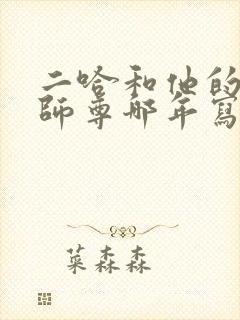 二哈和他的
師尊哪年寫
菜森森